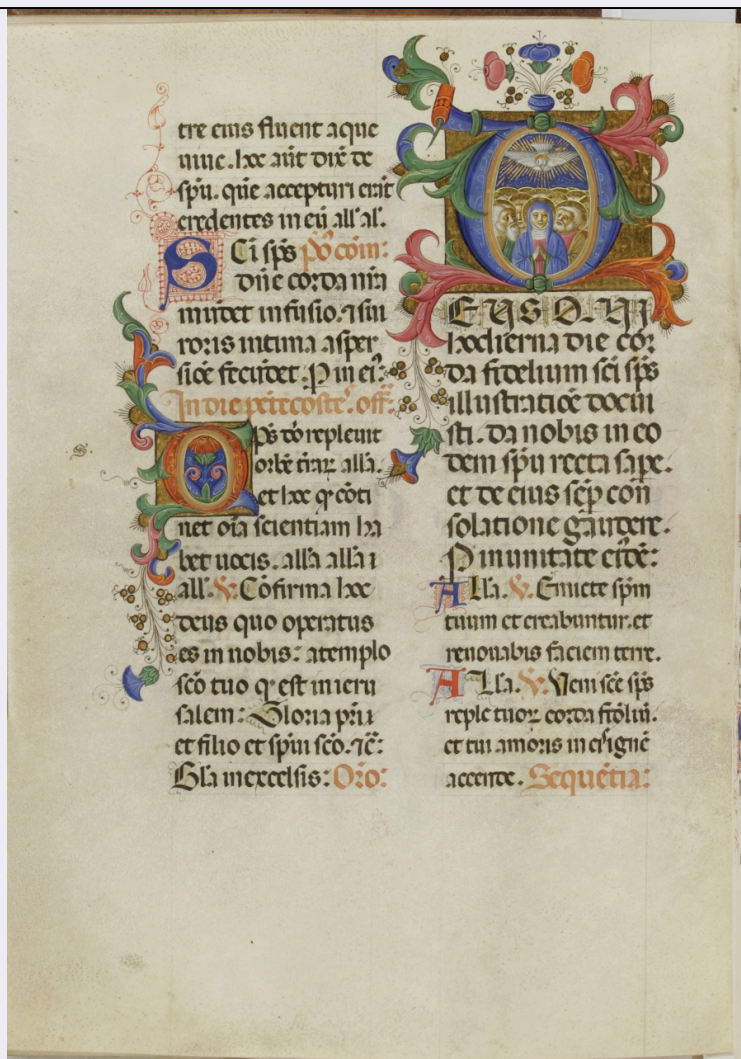 tre eius fluent aque
uiue. hec aut̄ dix̄ de
sp̄u. quē accepturi erāt
credentes in eū all'al'.
SCi sp̄s pō com̄:
dn̄e corda nr̄a
mūdet infusio. ⁊ sui
roris intima asper
siōe fecūdet. P in ei⁹:
In die pētecoste'. off':
SPs dō repleuit
orbē t̄raꝝ alla.
et hoc qđ cōti
net oīa scientiam ha
bet uocis. alla alla i
all'. V. Cōfirma hoc
deus quo operatus
es in nobis: atemplo
scō tuo qđ est in ieru
salem: Gloria pr̄i
et filio et spiui scō. ⁊c̄:
Gl'a in excelsis: Orō:
DEUS Q UI
hodierna die cor
da fidelium sc̄i sp̄s
illustratiōe docui
sti. da nobis in eo
dem sp̄u recta sape.
et de eius sēp con
solatione gaudere.
P in unitate eiꝰdē:
Alla. V. Emicte spm̄
tuum et creabuntur. et
renouabis faciem terre.
Alla. V. Veni sc̄e sp̄s
reple tuoꝝ corda fidēliū.
et tui amoris in eis ignē
accende. Sequētia: